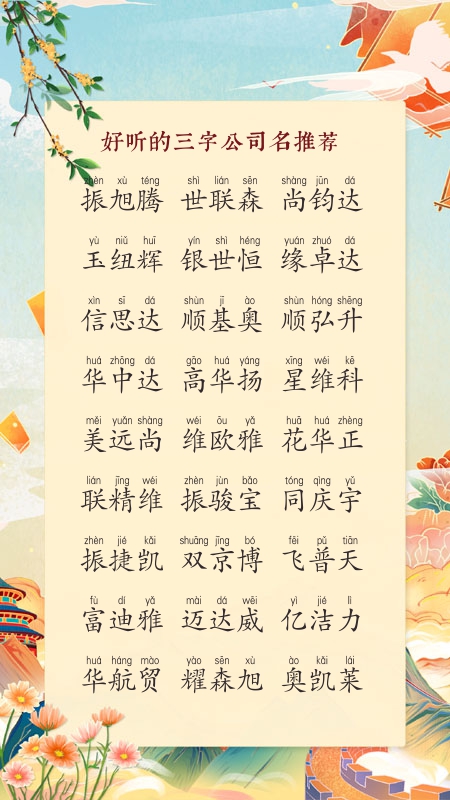 好听的三字公司名推荐
zhèn xù téng shì lián sēn shàng jūn dá
振旭腾 世联森 尚钧达
yù niǔ huī yín shì héng yuán zhuó dá
玉纽辉 银世恒 缘卓达
xìn sī dá shùn jī ào shùn hóng shēng
信思达 顺基奥 顺弘升
huá zhōng dá gāo huá yáng xīng wéi kē
华中达 高华扬 星维科
měi yuǎn shàng wéi ōu yǎ huā huá zhèng
美远尚 维欧雅 花华正
lián jīng wéi zhèn jùn bǎo tóng qìng yǔ
联精维 振骏宝 同庆宇
zhèn jié kǎi shuāng jīng bó fēi pǔ tiān
振捷凯 双京博 飞普天
fù dí yǎ mài dá wēi yì jié lì
富迪雅 迈达威 亿洁力
huá háng mào yào sēn xù ào kǎi lái
华航贸 耀森旭 奥凯莱